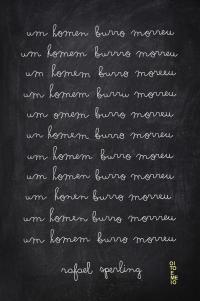 um homen burro morreu
um homem burro morreu
um homem burro moreeu
um homem burru morreu
um omem burro morreu
un homem burro morreu
um homem burro moreu
um homem buro morreu
um honen burro morreu
um homen burro morreu
um homem burro morreu
rafael sperling
OI
TO E
ME
IO